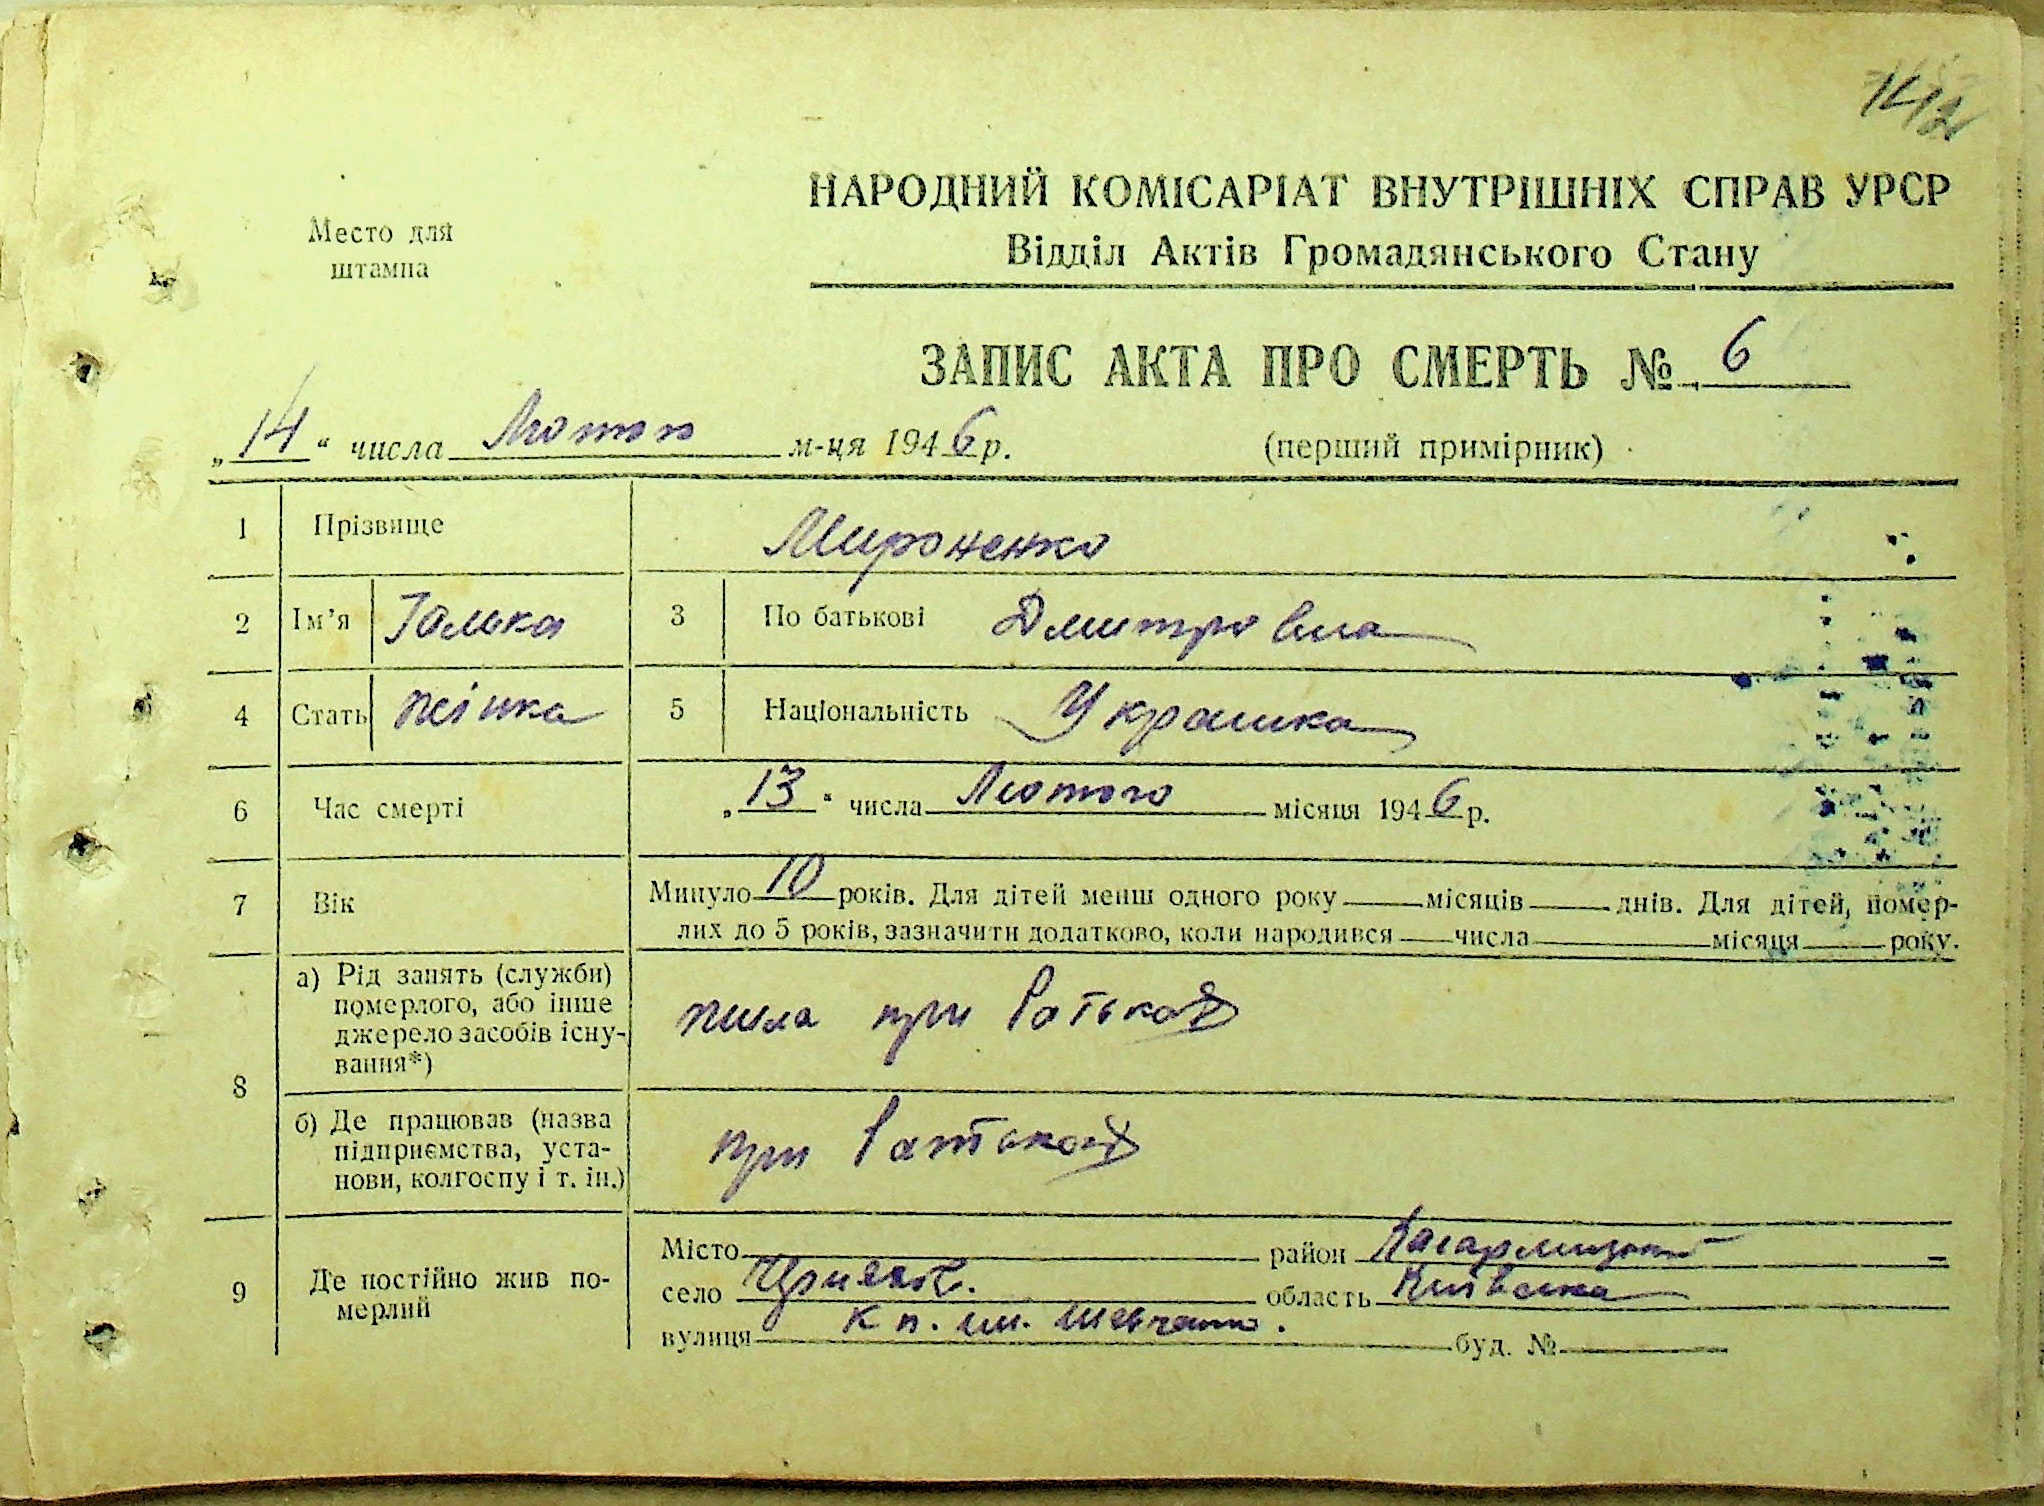 Место для
штампа
НАРОДНИЙ КОМІСАРІАТ ВНУТРІШНІХ СПРАВ УРСР
Відділ Актів Громадянського Стану
ЗАПИС АКТА ПРО СМЕРТЬ № 6
„14“ числа Лютого м-ця 1946 р. (перший примірник)
1 Прізвище Мироненко
2 Ім’я Галька 3 По батькові Дмитровна
4 Стать жінка 5 Національність Українка
6 Час смерті „13“ числа Лютого місяця 1946 р.
7 Вік Минуло 10 років. Для дітей менш одного року місяців днів. Для дітей, помер-
лих до 5 років, зазначити додатково, коли народився числа місяця року.
8 а) Рід занять (служби)
померлого, або інше
джерело засобів існу-
вання*)
жила при батьках
б) Де працював (назва
підприємства, уста-
нови, колгоспу і т. ін.)
при батьках
9 Де постійно жив по-
мерлий
Місто район
село область Київська
вулиця к п. им. Шевченко. буд. №